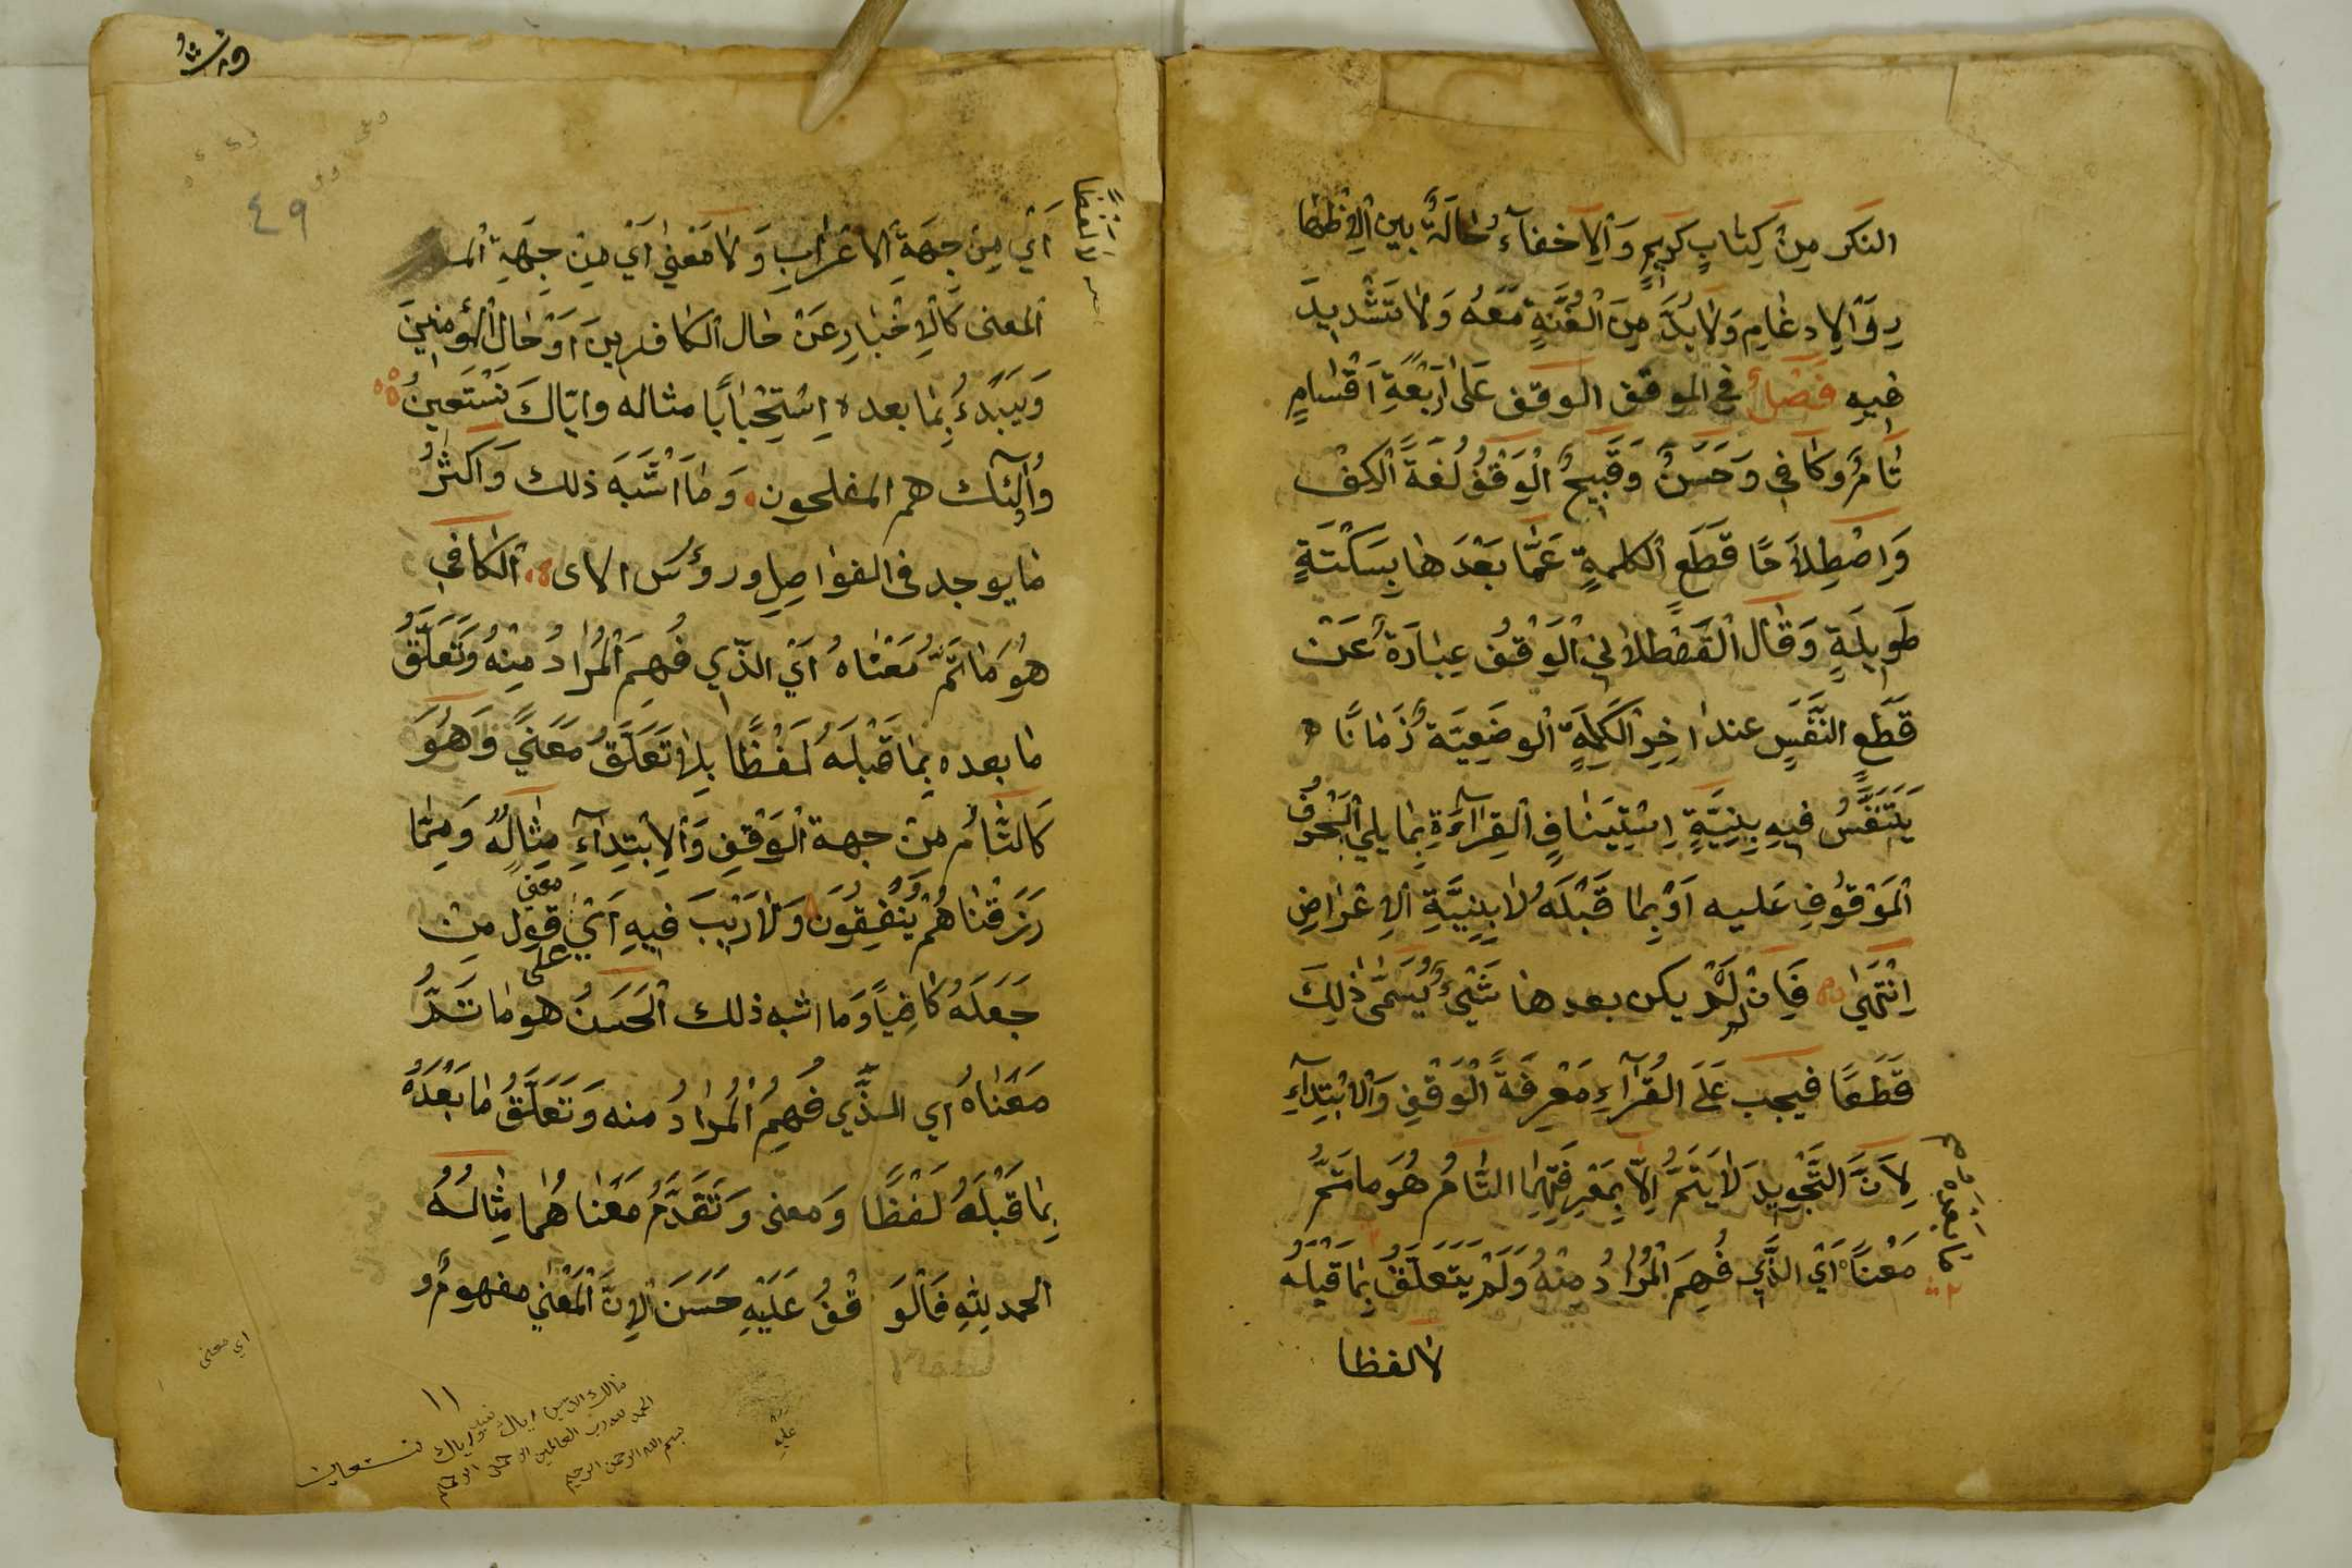 النكر مِنْ كِتٰابٍ كَرِيمٍ وَالْاِخفآءُ حٰالَةٌ بين الْاِظْهٰا
رِ وَالْاِدغٰامِ وَلٰابُدَّ مِنَ الْغُنَّةِ مَعَهُ وَلٰا تَشْدِيدَ
فِيهِ فَصْلٌ فِي الموقف الوقف عَلىٰ اَرْبَعَةِ اَقْسٰامٍ
تٰامٌّ وكٰافِي وَحَسَنٌ وَقَبِيحٌ الْوَقْفُ لُغَةً اَلْكِفْ
وَاِصْطِلٰاحًا قَطَع الكلمةٍ عَمّٰا بَعْدَهٰا بِسَكْتَةٍ
طَوِيلَةٍ وَقٰالَ الْقَصْطَلٰانِي الْوَقْفُ عِبٰارَةٌ عَنْ
قَطَعِ النَّفَسِ عند اٰخِرِ الْكَلِمَةِ الْوضَعِيَّة زَمٰانًا
يَتَنَفَّسُ فِيهِ بِنِيَّةِ اِسْتِينٰافِ الْقِرٰآءَةِ بِمٰا يلِي الْحَرْفُ
الْمَوْقُوفِ عَليه اَوْ بِمٰا قَبْلَهُ لٰا بِنِيَّةِ الْاِعْرٰاضِ
اِنْتَهىٰ فَاِنْ لَمْ يكن بعدهٰا شَيْئٌ يُسَمّٰى ذٰلِكَ
قَطَعًا فيجب عَلَى الْقُرّآءِ مَعْرِفَةُ الْوَقْفِ وَالْابْتِدٰآءِ
لِاَنَّ التَّجْوِيدَ لٰا يَتِمُّ اِلّٰا بِمَعْرِفَتِهِمٰا التّٰامُّ هُوَ مٰا تَمَّ
مَعْنٰاهُ اَيْ الَّذِي فُهِمَ الْمُرٰادُ مِنْهُ وَلَمْ يَتَعَلَّقْ بِمٰا قَبْلَهُ
مٰا بعده
لٰا لفظا
ورش
٤٩
لا لَفْظًا
اَيْ مِنْ جِهَةِ الْاعْرٰابِ وَلٰا مَعْنىٰ اَيْ مِنْ جِهَةِ الم
المعنى كَالْاِخْبٰارِ عَنْ حٰالِ الكٰافرينَ اَوْ حٰالِ الْمُؤمنينَ
وَيَبْدَءُ بِمٰا بعده اِسْتِحْبٰابًا مثاله واِيّاكَ نَسْتَعِينُ
وَاُولٰٓئك هم المفلحون وَمٰا اَشْبَهَ ذٰلك وَاَكْثَرُ
مٰا يوجد فى الفوٰاصِلِ ورؤس الاى الكٰافِي
هُوَ مٰا تَمَّ مَعْنٰاهُ اَيْ الَّذِي فُهِمَ الْمُرٰادُ مِنْهُ وَتَعَلَّقُ
مٰا بعده بِمٰا قَبْلَهُ لَفْظًا بِلٰا تَعَلَّقُ مَعْنىً وَهُوَ
كَالتّٰامُّ مِنْ جهة الْوَقْفِ وَالْاِبْتِدٰآءِ مِثٰالُهُ وَمِمّٰا
رَزَقْنٰاهُمْ يُنْفِقُونَ وَلٰارَيْبَ فِيهِ اَيْ على معنى قول مِنْ
جَعَلَهُ كٰافِيًا وَمٰا اشبه ذلك الْحَسَنُ هو مٰا تَمَّ
مَعْنٰاهُ اَي الَّذِي فُهِمَ الْمُرٰادُ منه وَتَعَلَّقُ مٰا بَعْدَهُ
بِمٰا قَبْلَهُ لَفْظًا وَمعنى وَتَقَدَّمُ مَعْنٰاهُمٰا مِثٰالُهُ
الحمد لِلّٰهِ فَالْوَقْفُ عَلَيْهِ حَسَنَ لِاِنَّ الْمَعْنىٰ مفهومٌ و
اي معنى
عليه
١١
بسم الله الرحمن الرحيم
الحمد لله رب العالمين الرحمن الرحيم